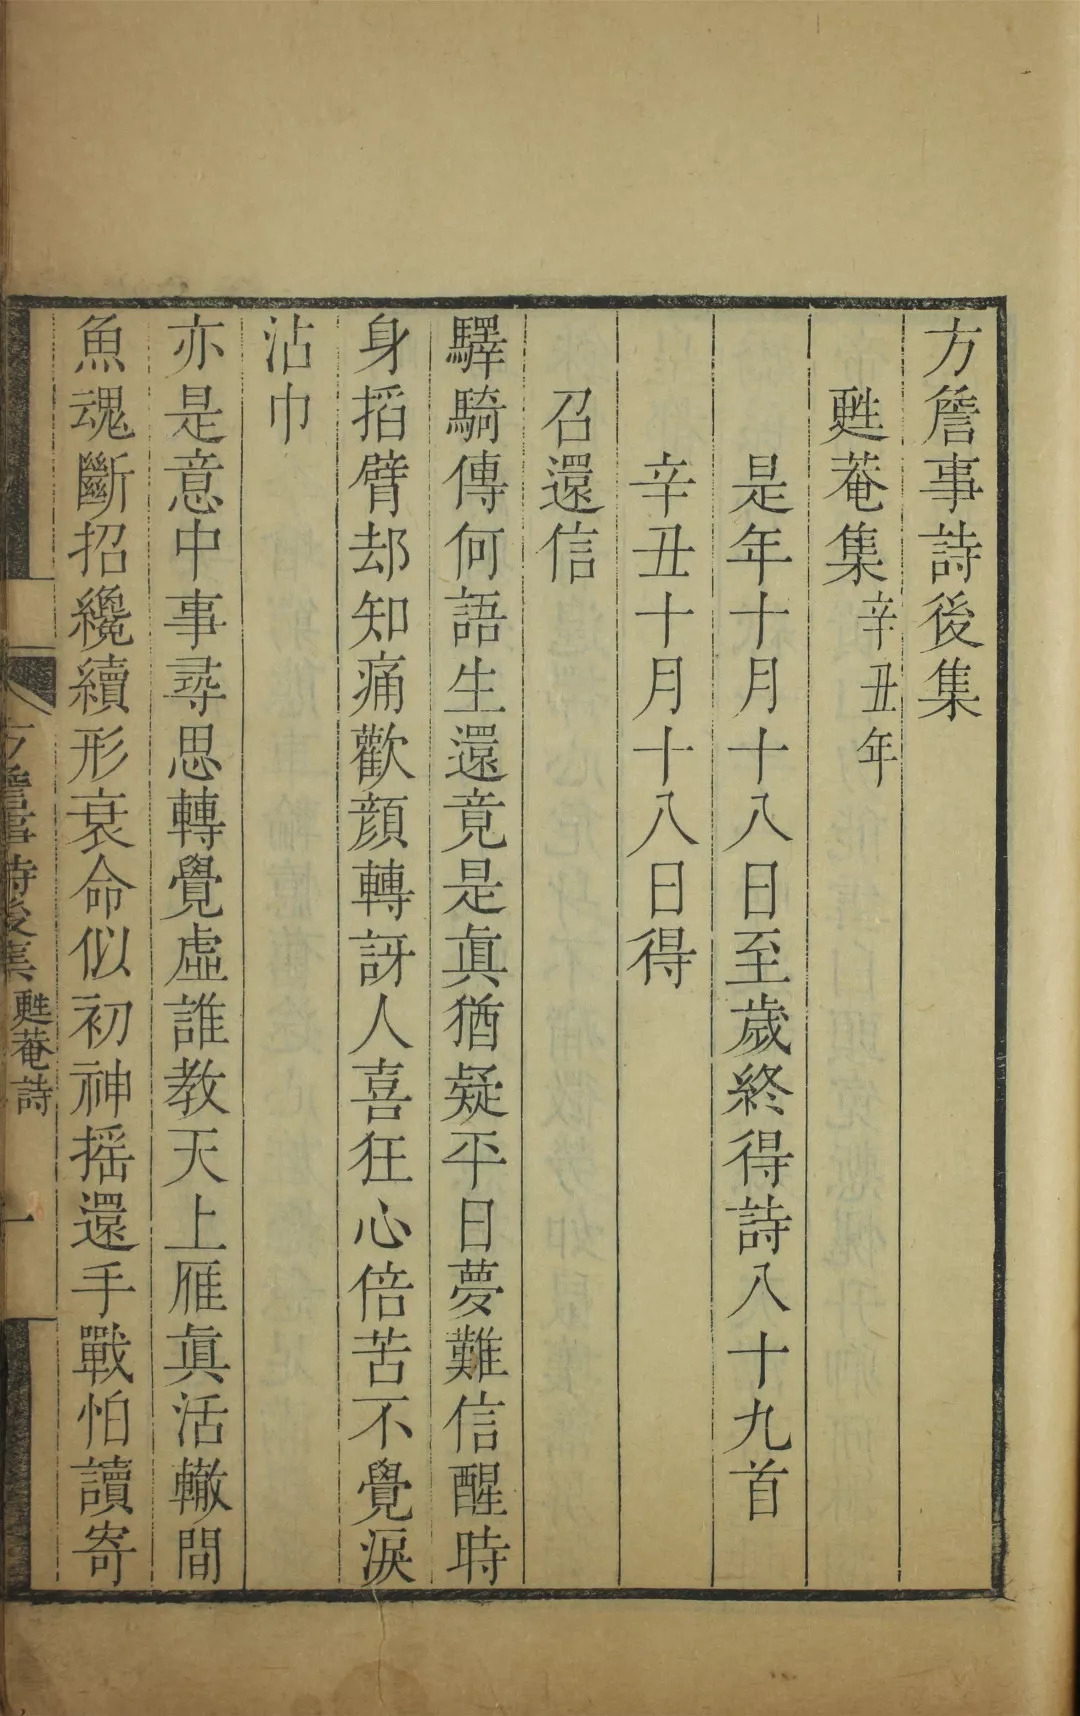 方詹事詩後集
甦菴集辛丑年
是年十月十八日至歲終得詩八十九首
辛丑十月十八日得
召還信
驛騎傳何語生還竟是眞猶疑平日夢難信醒時
身搯臂却知痛歡顏轉訝人喜狂心倍苦不覺淚
沾巾
亦是意中事尋思轉覺虛誰教天上雁眞活轍間
魚魂斷招纔續形衰命似初神摇還手戰怕讀寄
方詹事詩後集 甦菴詩 一